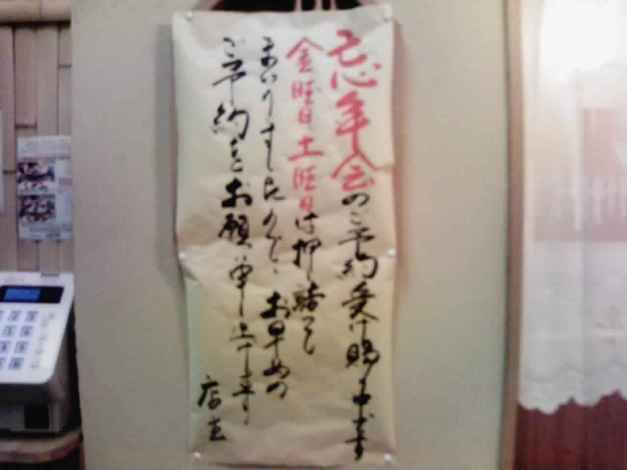 忘年会のご予約受け賜ります
金曜日土曜日は押し詰って
まいりましたので、お早めの
ご予約をお願い申し上げます
店主